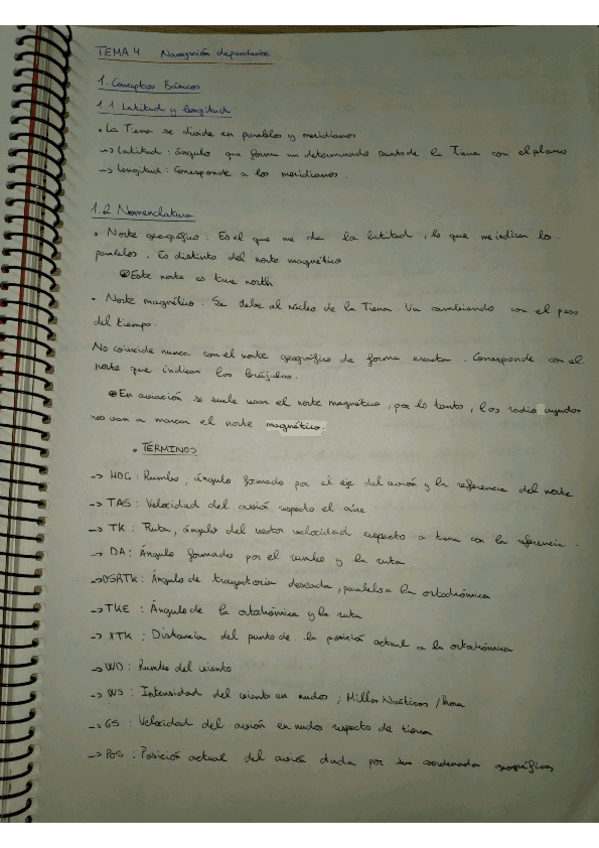 TEMA 4 Navegación dependiente
1. Conceptos Básicos
1.1 Latitud y longitud
• La Tierra se divide en paralelos y meridianos
→ Latitud : ángulo que forma un determinado punto de la Tierra con el plano
→ Longitud : Corresponde a los meridianos.
1.2 Nomenclatura
• Norte geográfico : Es el que me da la latitud, lo que me indican los
paralelos. Es distinto del norte magnético
Este norte es true north
• Norte magnético : Se debe al núcleo de la Tierra. Va cambiando con el paso
del tiempo.
No coincide nunca con el norte geográfico de forma exacta. Corresponde con el
norte que indican las brújulas.
En aviación se suele usar el norte magnético, por lo tanto, las radio ayudas
nos van a marcar el norte magnético.
• TÉRMINOS
→ HDG : Rumbo, ángulo formado por el eje del avión y la referencia del norte
→ TAS : Velocidad del avión respecto el aire
→ TK : Ruta, ángulo del vector velocidad respecto a tierra con la referencia.
→ DA : Ángulo formado por el rumbo y la ruta
→ DSRTK : Ángulo de trayectoria deseada, paralelo a la ortodrómica
→ TKE : Ángulo de la ortodrómica y la ruta
→ XTK : Distancia del punto de la posición actual a la ortodrómica
→ WD : Rumbo del viento
→ WS : Intensidad del viento en nudos ; Millas Naúticas / hora
→ GS : Velocidad del avión en nudos respecto de tierra
→ POS : Posición actual del avión dada por sus coordenadas geográficas